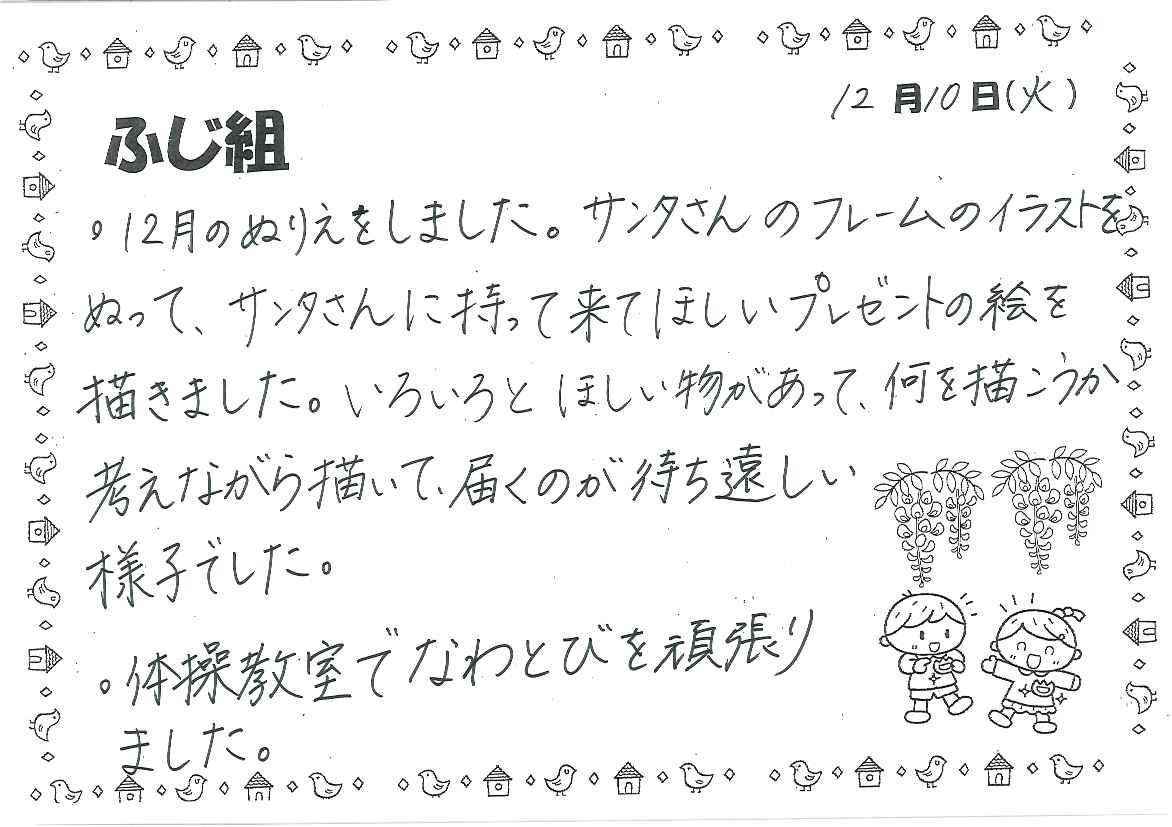 12月10日(火)
ふじ組
。12月のぬりえをしました。サンタさんのフレームのイラストを
ぬって、サンタさんに持って来てほしいプレゼントの絵を
描きました。いろいろとほしい物があって、何を描こうか
考えながら描いて、届くのが待ち遠しい
様子でした。
。体操教室でなわとびを頑張り
ました。